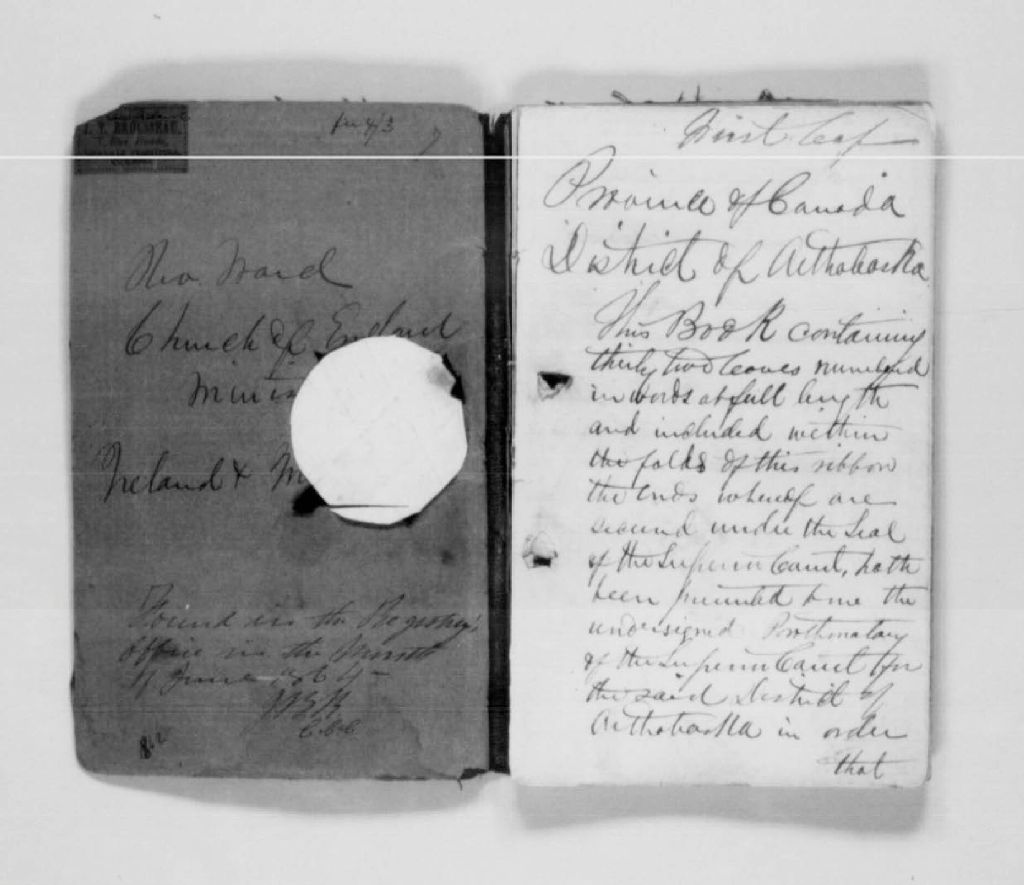 J. T. BROUSSEAU,
fr 4/3
Rev Ward
Church of England
Minis
Ireland & M
Found in the Registry
office in the month
of June 1864
C.C.C
812
First Leaf
Province of Canada
District of Arthabaska
This Book containing
thirty two leaves numbered
in words at full length
and included within
the folds of this ribbon
the ends whereof are
secured under the Seal
of the Superior Court, hath
been presented to me the
undersigned Prothonotary
of the Superior Court for
the said District of
Arthabaska in order
that